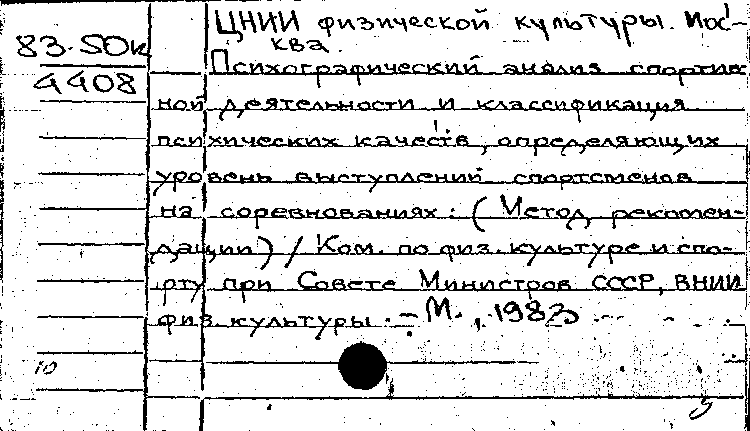 ЦНИИ физической культуры. Мос-
ква.
83-5Ок
4408
Психографический анализ спортив-
ной деятельности и классификация
психических качеств, определяющих
уровень выступлений спортсменов
на соревнованиях: (Метод. рекомен-
дации) / Ком. по физ. культуре и спо-
рту при Совете Министров СССР, ВНИИ
физ. культуры. - М., 1983
10